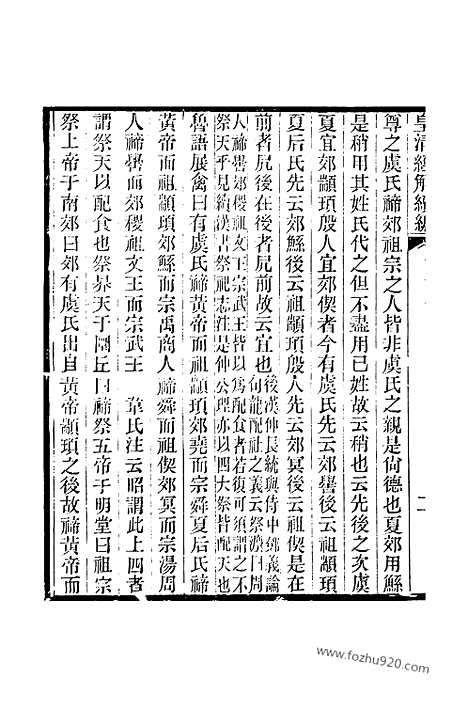 皇清經解續編
尊之虞氏禘郊祖宗之人皆非虞氏之親是尚德也夏郊用鯀
是稍用其姓氏代之但不盡用已姓故云稍也云先後之次虞
夏宜郊顓頊殷人宜郊契者今有虞氏先云郊嚳後云祖顓頊
夏后氏先云郊鯀後云祖顓頊殷人先云郊冥後云祖契是在
前者居後在後者居前故云宜也
後漢仲長統與侍中鄧義論
句龍配社之義云祭灋曰周
人禘嚳郊稷祖文王宗武王皆以為配食者若復可須謂之不
祭天乎見續漢書祭祀志注是仲公理亦以四大祭皆配天也
魯語展禽曰有虞氏禘黃帝而祖顓頊郊堯而宗舜夏后氏禘
黃帝而祖顓頊郊鯀而宗禹商人禘舜而祖契郊冥而宗湯周
人禘嚳而郊稷祖文王而宗武王 韋氏注云昭謂此上四者
謂祭天以配食也祭昦天于圜丘曰禘祭五帝于明堂曰祖宗
祭上帝于南郊曰郊有虞氏出自黃帝顓頊之後故禘黃帝而
www.fozhu920.com